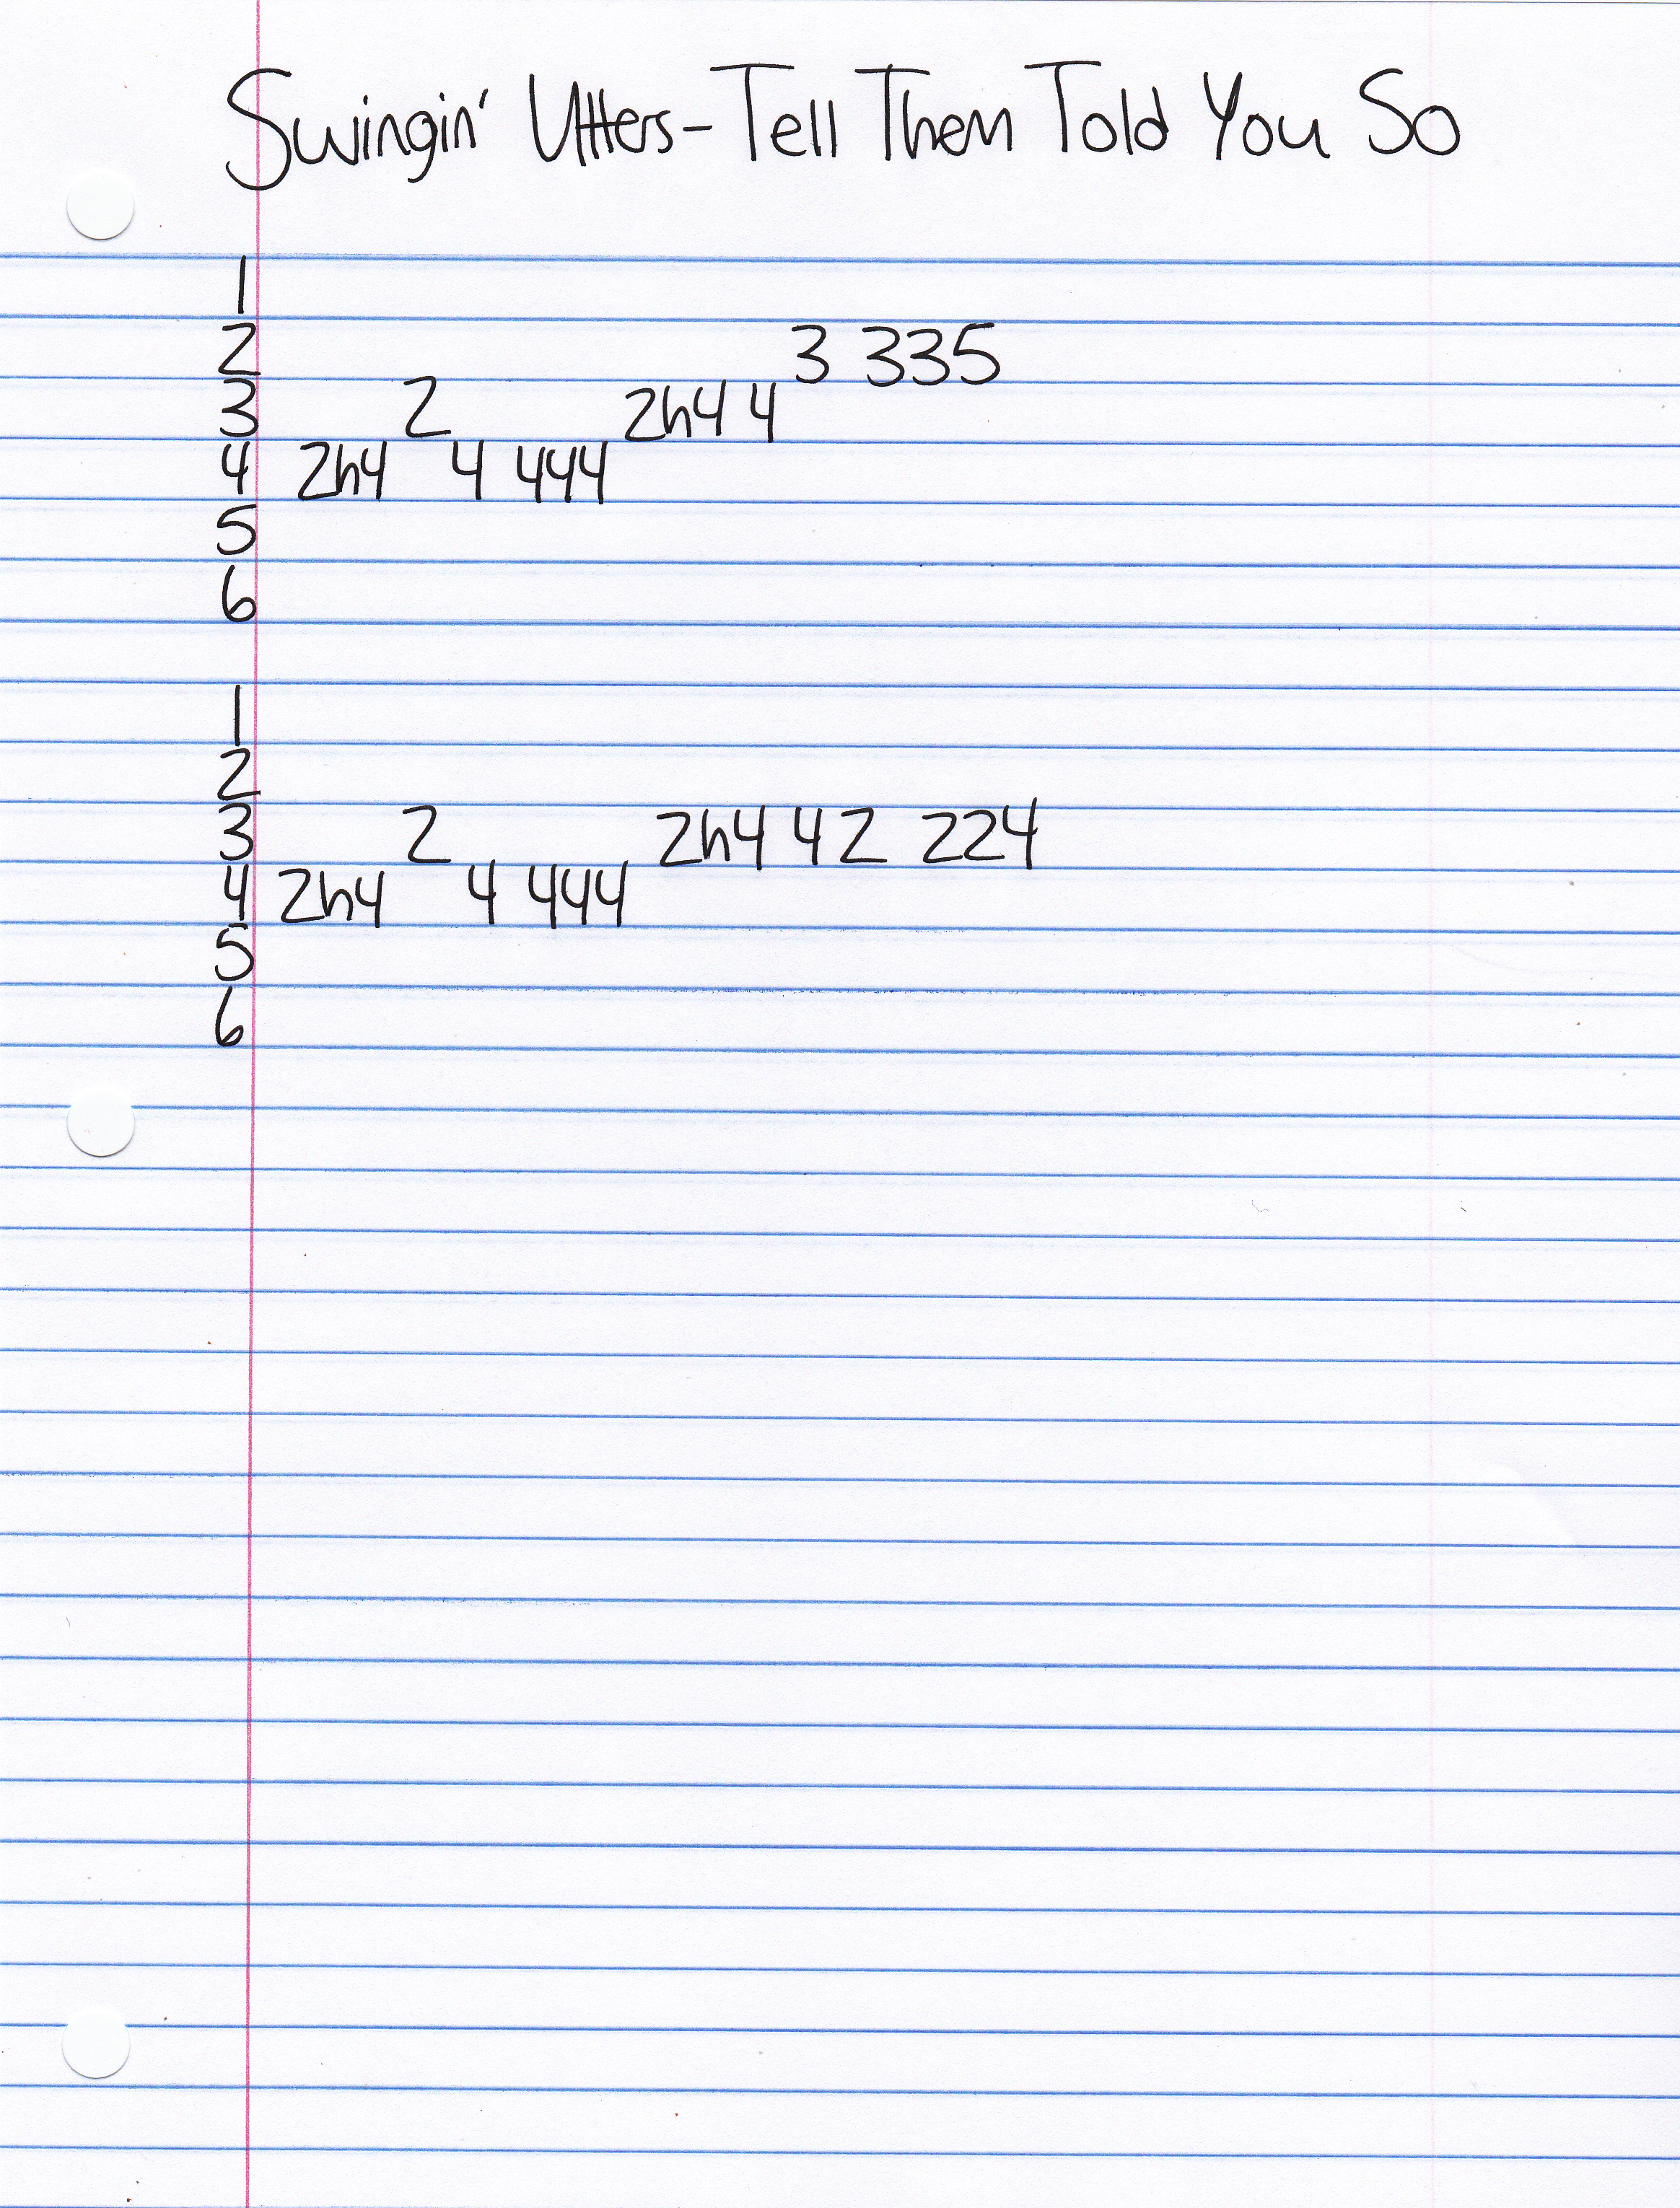 Swingin' Utters-Tell Them Told You So
1
2 3 335
3 2 2h4 4
4 2h4 4 444
5
6
1
2
3 2 2h4 42 224
4 2h4 4 444
5
6